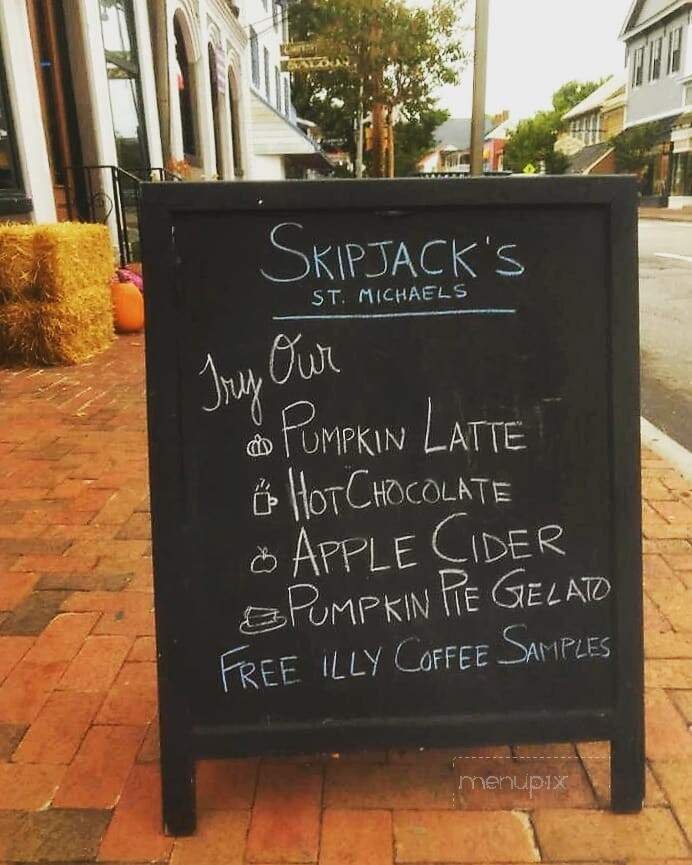 SKIPJACK'S
ST. MICHAELS
Try Our
PUMPKIN LATTE
HOT CHOCOLATE
APPLE CIDER
PUMPKIN PIE GELATO
FREE ILLY COFFEE SAMPLES
menupix